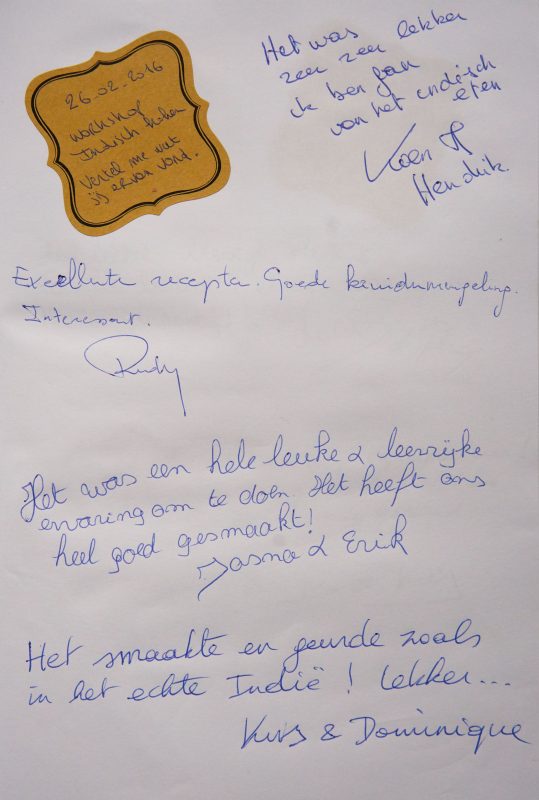 26.02.2016
Workshop
Indisch koken
Vertel me wat
jij ervan vond.
Het was
zeer zeer lekker
ik ben fan
van het indisch
eten
Koen
Hendrik.
Excellente recepten. Goede kruidenmengeling.
Interessant.
Rudy
Het was een hele leuke & leerrijke
ervaring om te doen. Het heeft ons
heel goed gesmaakt!
Jasna & Erik
Het smaakte en geurde zoals
in het echte Indië! Lekker...
& Dominique